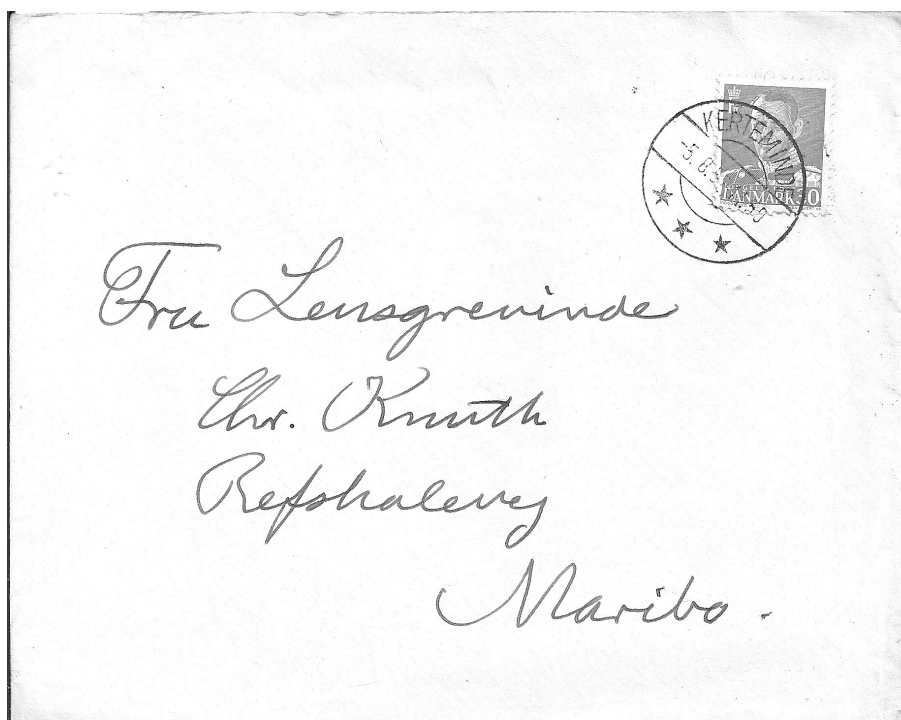 KERTEMINDE
-5. 8.5
DANMARK 30
Fru Lensgrevinde
Chr. Knuth
Refshalevej
Maribo.